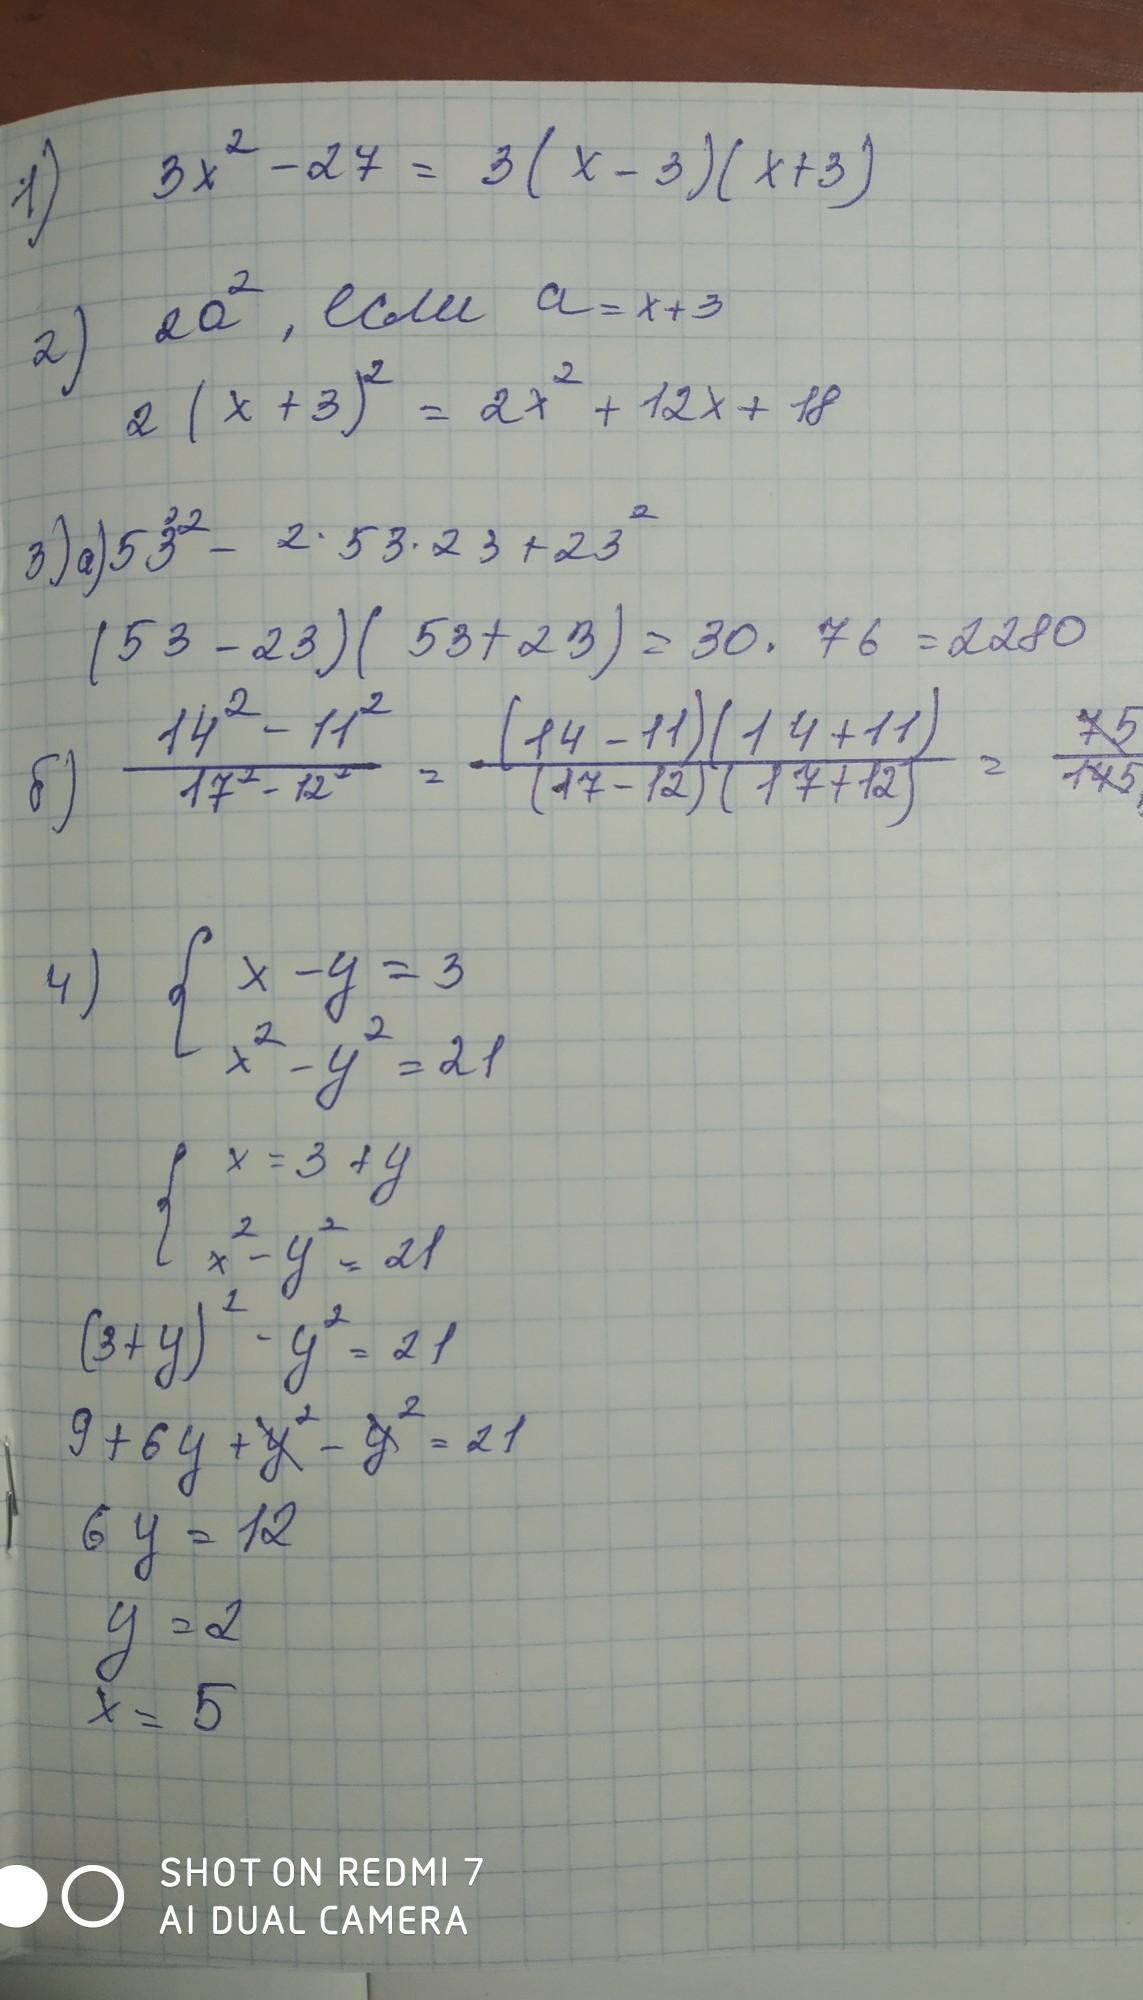 1) 3x² - 27 = 3(x - 3)(x + 3)
2) 2a², если a = x + 3
2(x + 3)² = 2x² + 12x + 18
3) а) 53² - 2·53·23 + 23²
(53 - 23)(53 + 23) = 30·76 = 2280
б) (14² - 11²)/(17² - 12²) = ((14 - 11)(14 + 11))/((17 - 12)(17 + 12)) = 75/145
4) { x - y = 3
x² - y² = 21
{ x = 3 + y
x² - y² = 21
(3 + y)² - y² = 21
9 + 6y + y² - y² = 21
6y = 12
y = 2
x = 5
SHOT ON REDMI 7
AI DUAL CAMERA